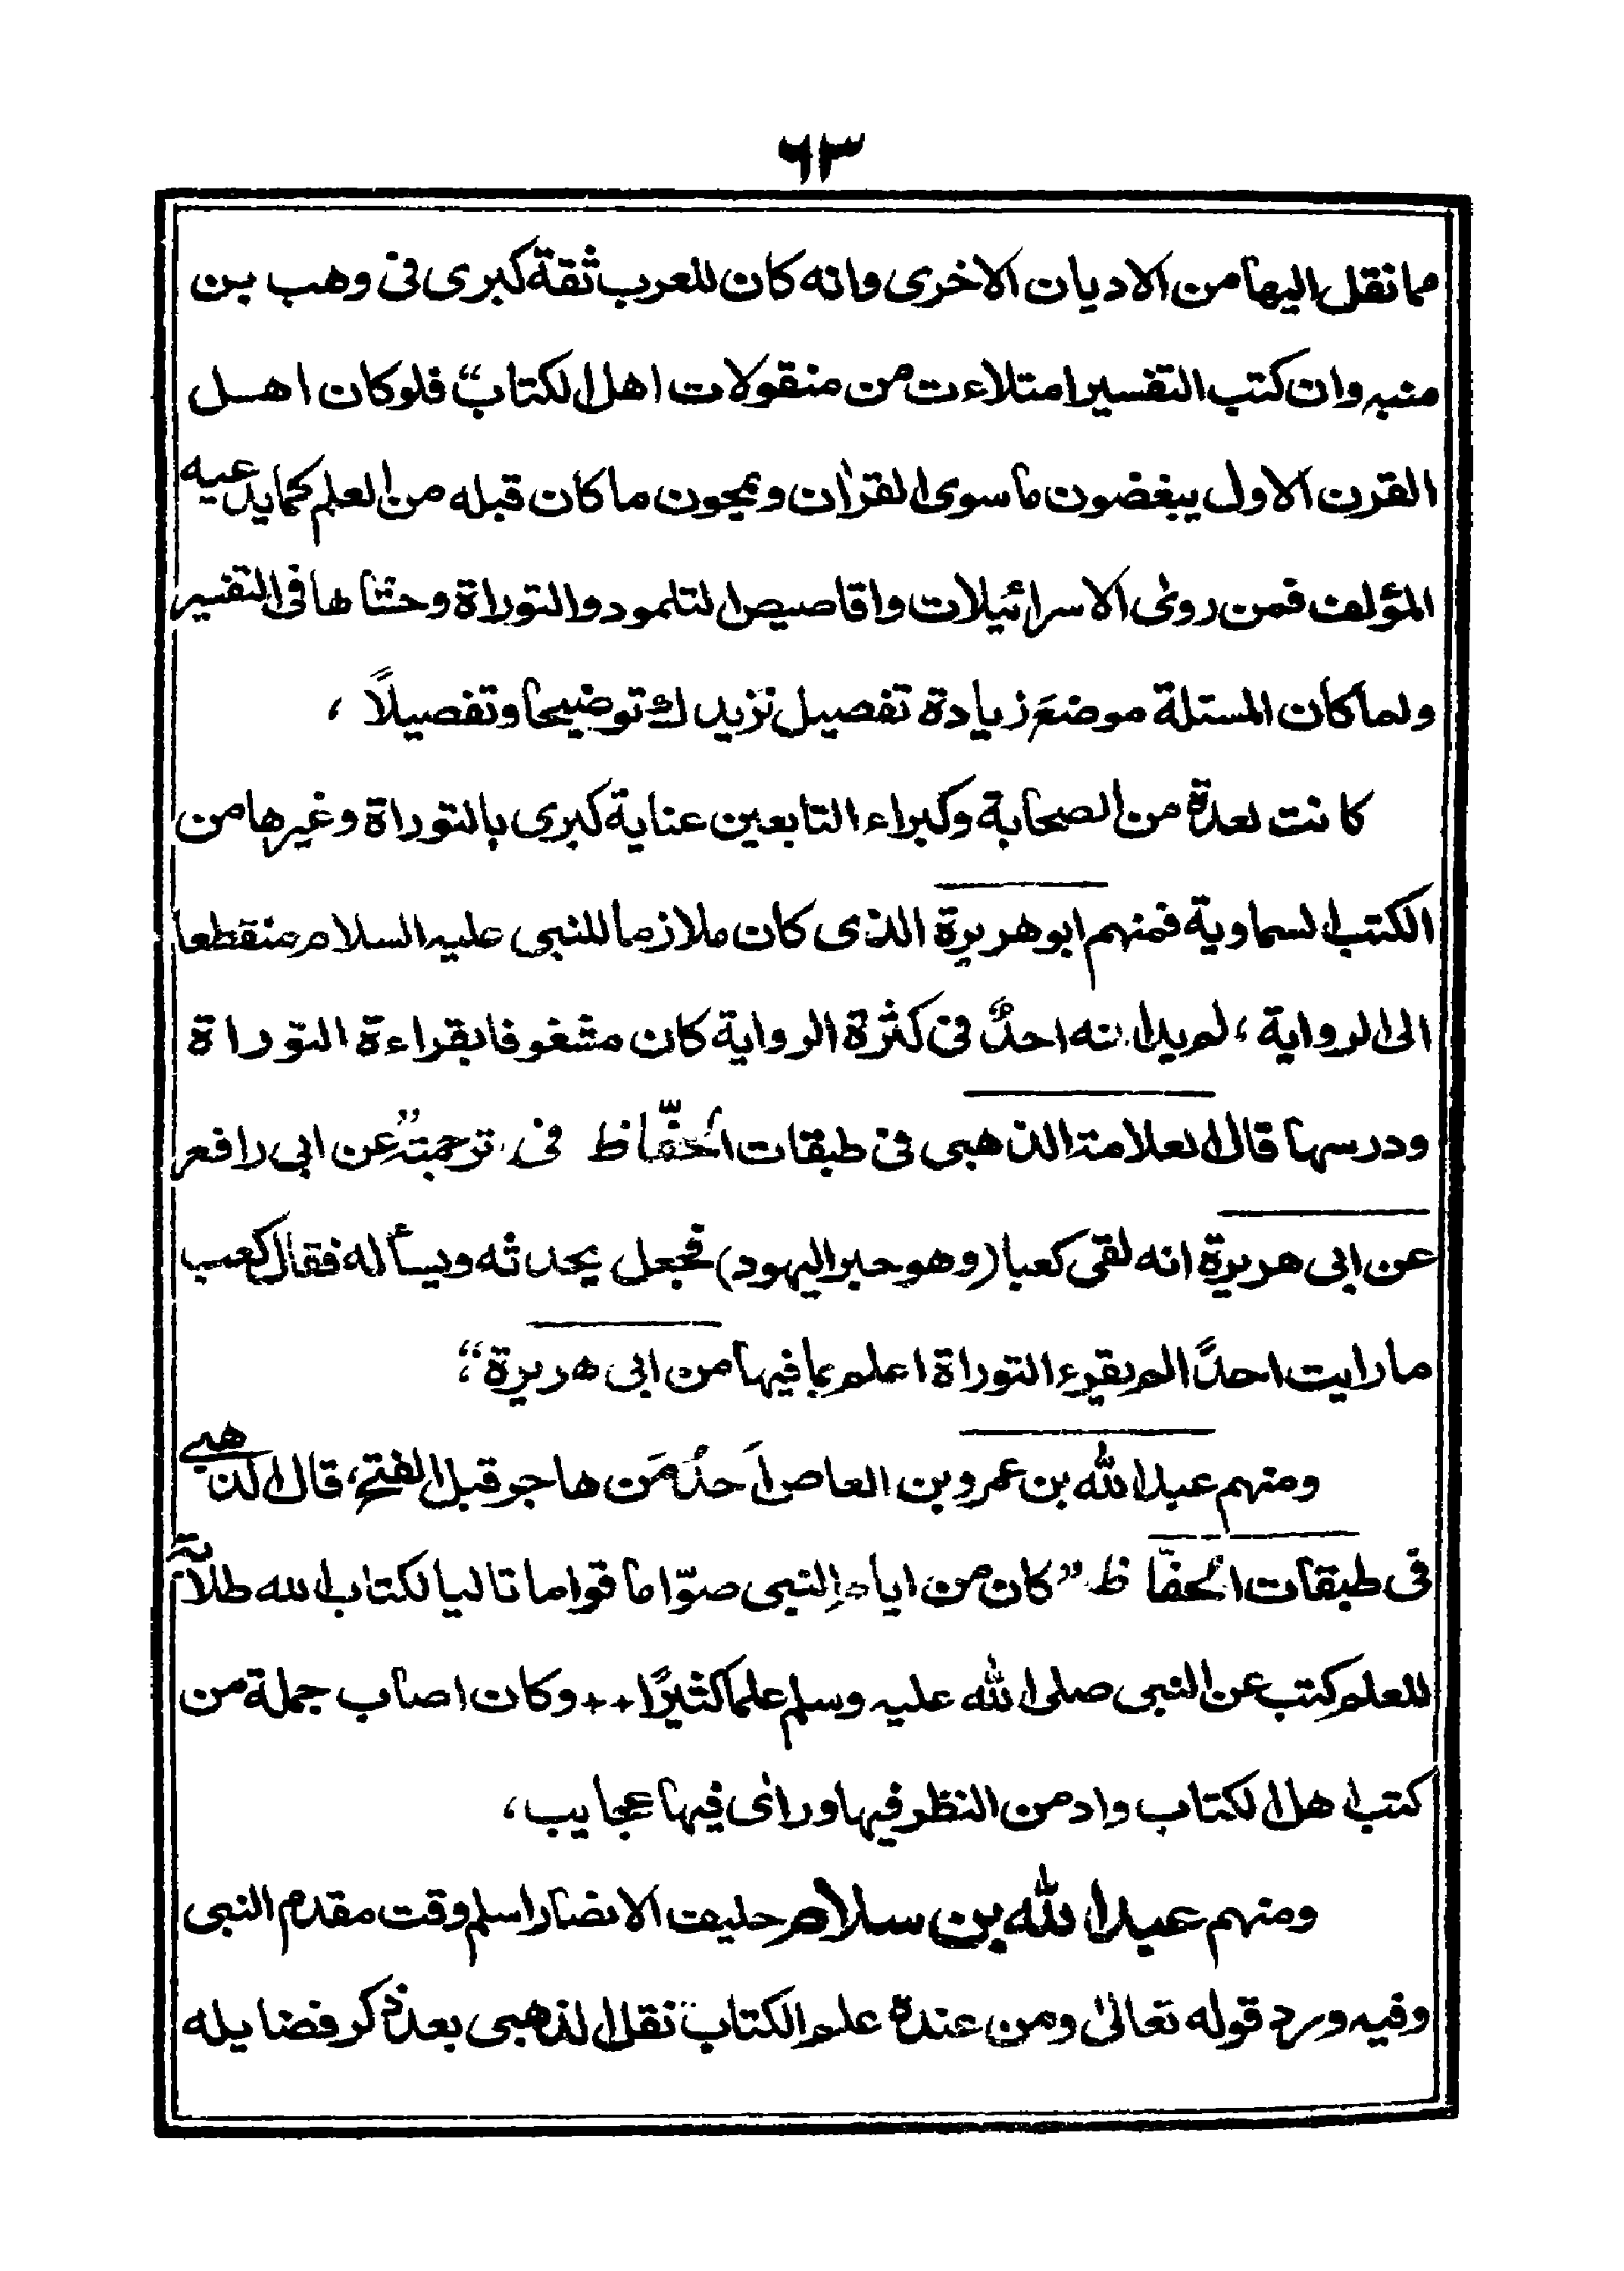 ٦٣
مما نقل اليها من الاديان الاخرى وانه كان للعرب ثقة كبرى فى وهب بن
منبه وان كتب التفسير امتلاءت من منقولات اهل الكتاب“ فلو كان اهل
القرن الاول يبغضون ما سوى القران ويمجون ما كان قبله من العلم كما يدعيه
المؤلف فمن روى الاسرائيلات واقاصيص التلمود والتوراة وحشاها فى التفسير
ولما كان المسئلة موضعَ زيادة تفصيل نزيدك توضيحا وتفصيلاً ،
كانت لعدة من الصحابة وكبراء التابعين عناية كبرى بالتوراة وغيرها من
الكتب السماوية فمنهم ابو هريرة الذى كان ملازما للنبى عليه السلام منقطعا
الى الرواية ، لم يدانه احدٌ فى كثرة الرواية كان مشغوفا بقراءة التوراة
ودرسها قال العلامة الذهبى فى طبقات الحفّاظ فى ترجمته ”عن ابى رافع
عن ابى هريرة انه لقى كعبا (وهو حبر اليهود) فجعل يحدثه ويسأله فقال كعب
ما رايت احدًا لم يقرء التوراة اعلم بما فيها من ابى هريرة“؛
ومنهم عبد الله بن عمرو بن العاص اَحدُ مَن هاجر قبل الفتح، قال الذهبى
فى طبقات الحفّاظ ”كان من ايام النبى صوّاما قواما تاليا لكتاب الله طلابة
للعلم كتب عن النبى صلى الله عليه وسلم علما كثيرًا ++ وكان اصاب جملة من
كتب اهل الكتاب وادمن النظر فيها ورأى فيها عجايب،
ومنهم عبد الله بن سلام حليف الانصار اسلم وقت مقدم النبى
وفيه ورد قوله تعالىٰ ومن عنده علم الكتاب“ نقل الذهبى بعد ذكر فضايله